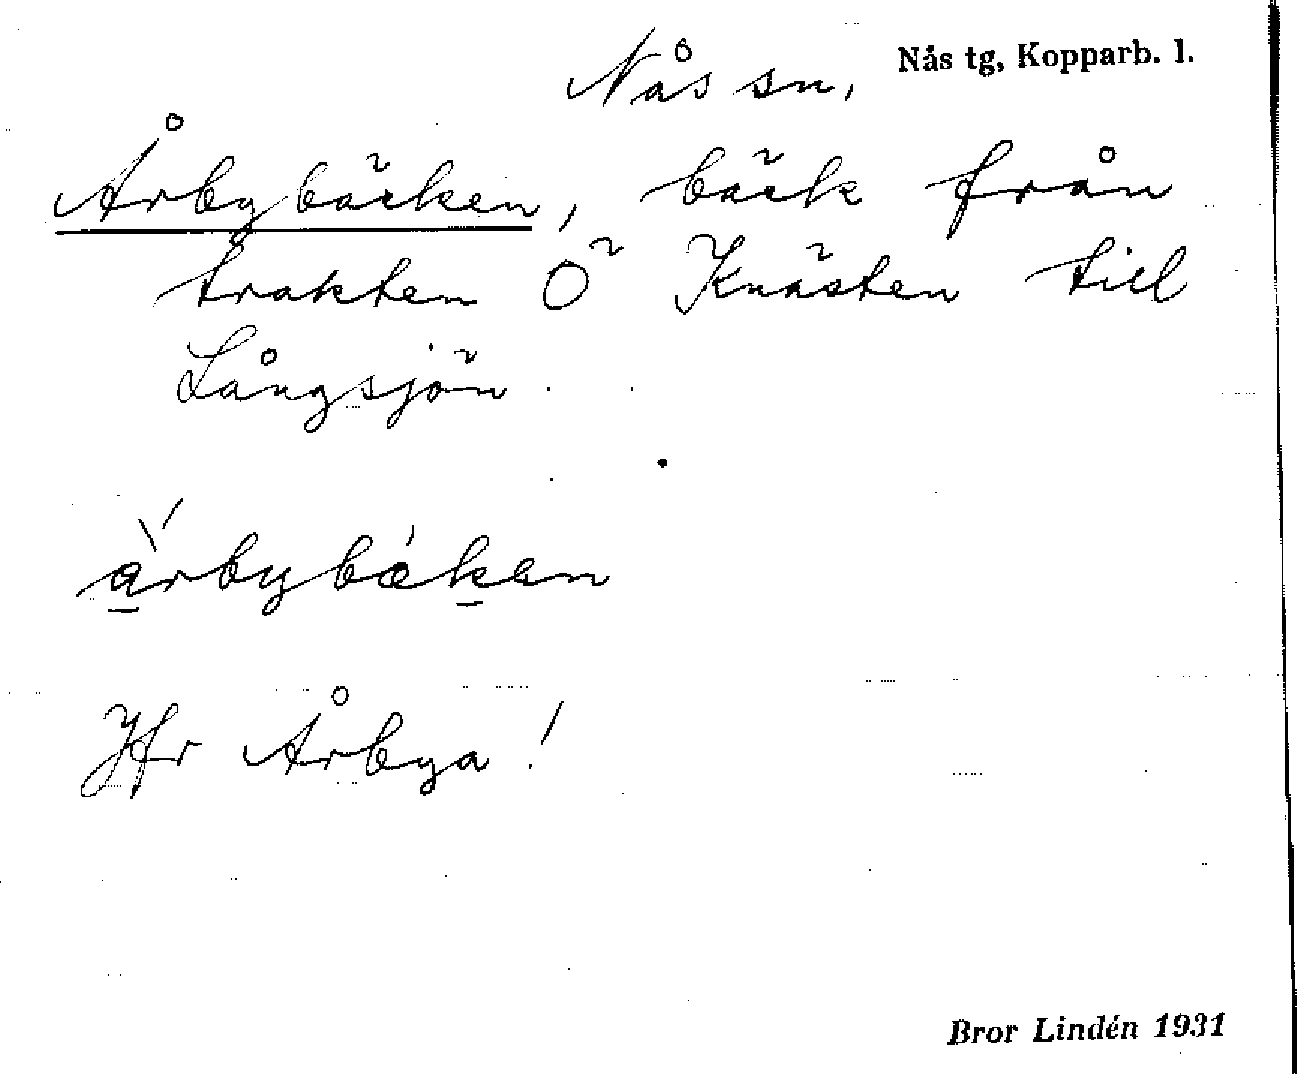 Nås sn, Nås tg, Kopparb. l.
Årbybäcken, bäck från
trakten Ö Knästen till
Långsjön.
Jfr Årbya!
Bror Lindén 1931